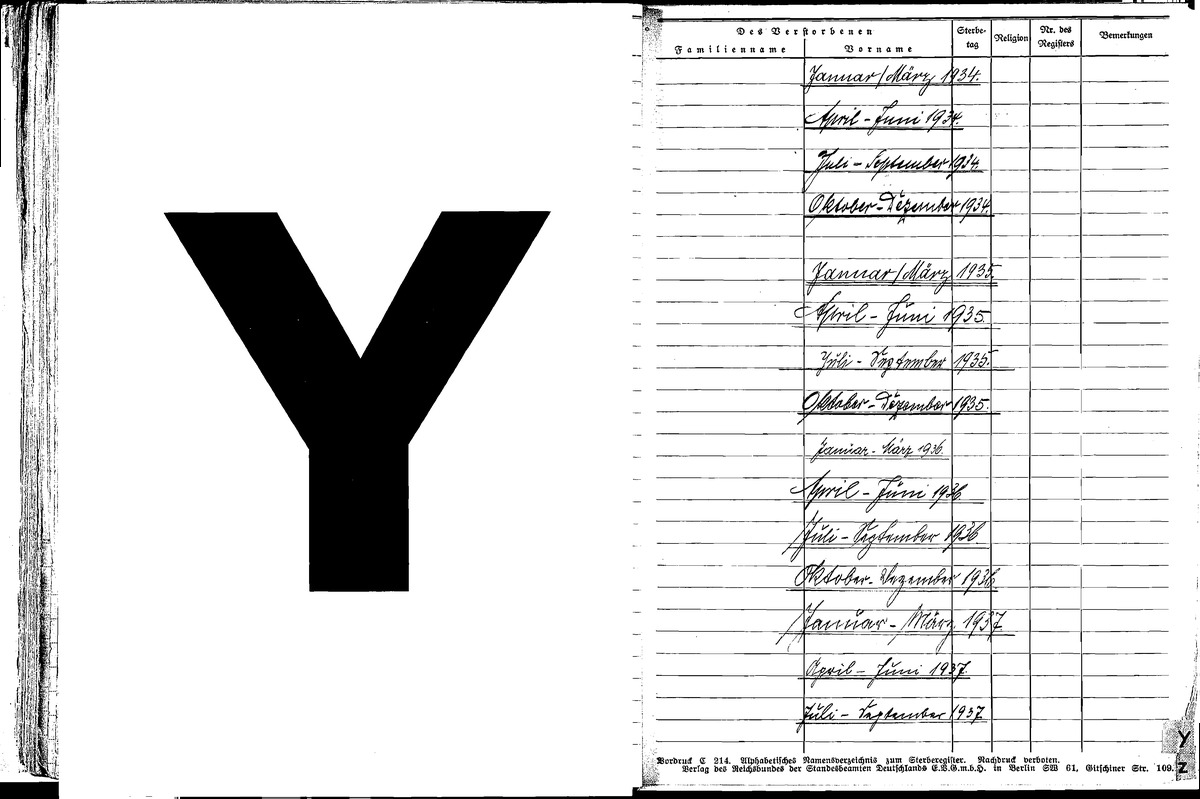 Y
Des Verstorbenen
Familienname Vorname Sterbe-tag Religion Nr. des Registers Bemerkungen
Januar/März 1934.
April - Juni 1934.
Juli - September 1934.
Oktober - Dezember 1934.
Januar/März 1935.
April - Juni 1935.
Juli - September 1935.
Oktober - Dezember 1935.
Januar - März 1936.
April - Juni 1936
Juli - September 1936.
Oktober - Dezember 1936.
Januar - März 1937
April - Juni 1937.
Juli - September 1937.
Vordruck C 214. Alphabetisches Namensverzeichnis zum Sterberegister. Nachdruck verboten.
Verlag des Reichsbundes der Standesbeamten Deutschlands E.V.G.m.b.H. in Berlin SW 61, Gitschiner Str. 109.
Y
Z